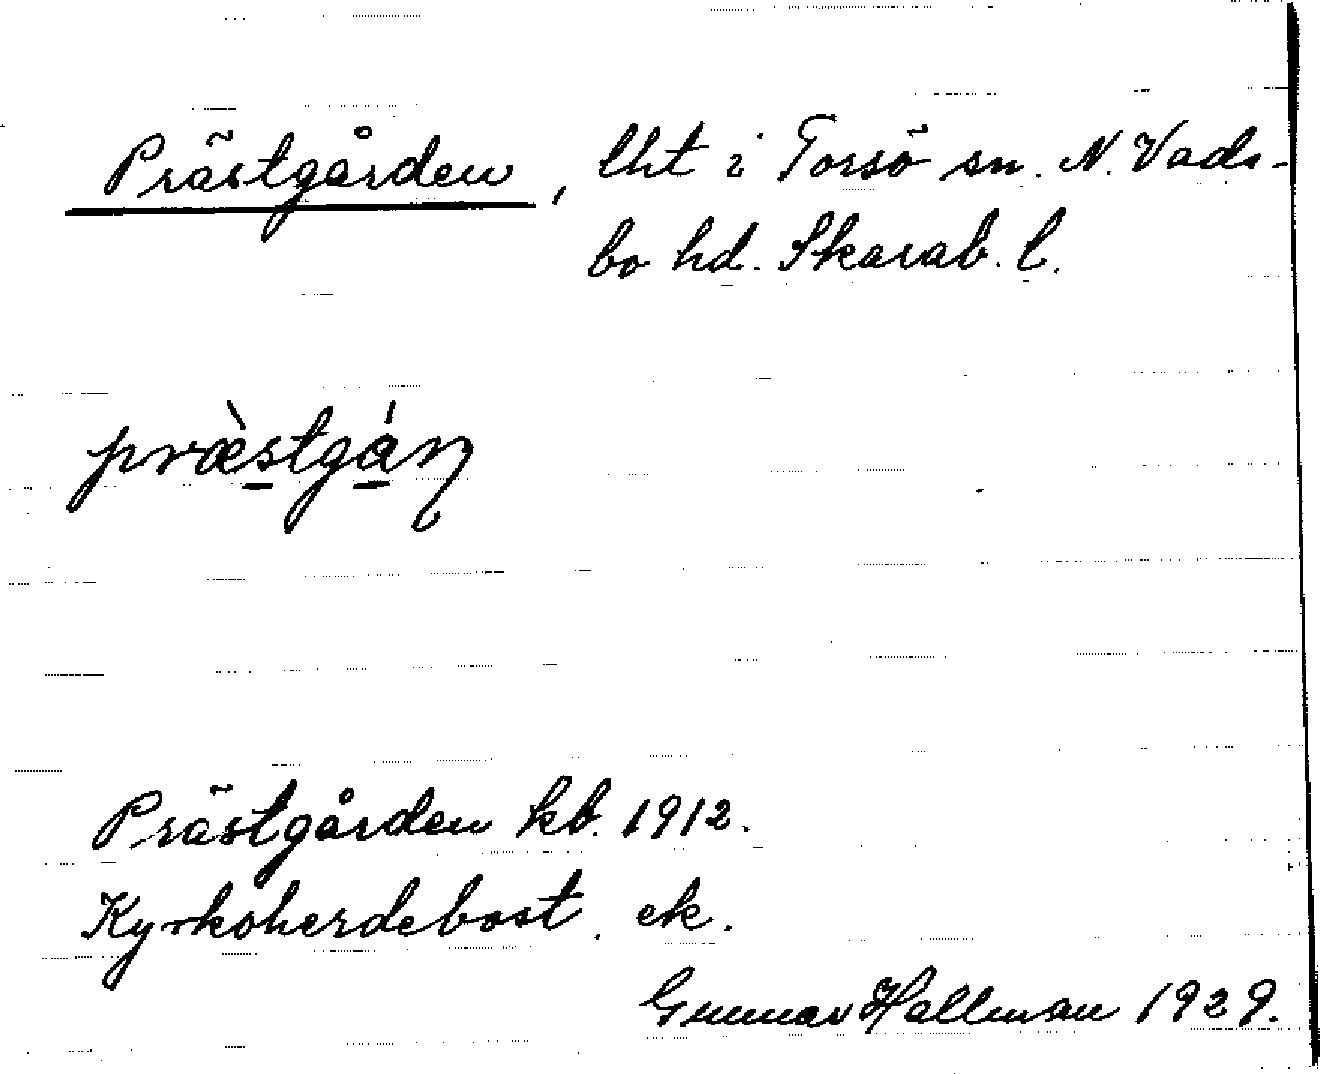 Prästgården, lht i Torsö sn. N. Vads-
bo hd. Skarab. l.
præ̀stgáɳ
Prästgården kb. 1912.
Kyrkoherdebost. ek.
Gunnar Hallman 1929.